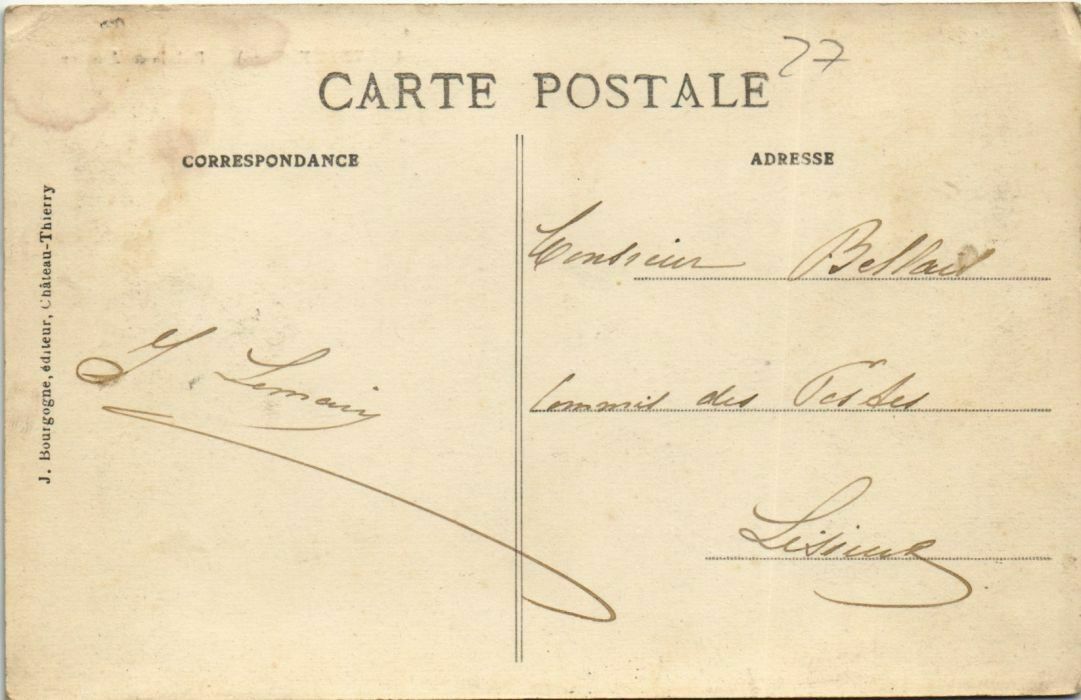 CARTE POSTALE
27
CORRESPONDANCE
ADRESSE
J. Bourgogne, éditeur, Château-Thierry
Monsieur
Commis des Postes
Lisieux